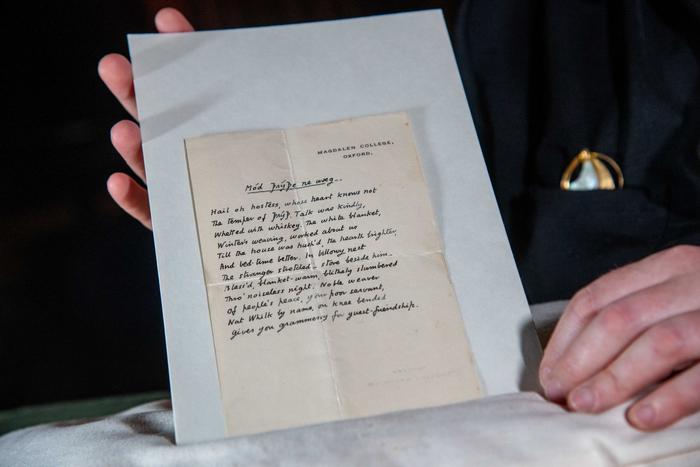 MAGDALEN COLLEGE,
OXFORD.
Mód Þrýþe ne wæg –
Hail oh hostess, whose heart knows not
The temper of Þrýþ. Talk was kindly,
Whetted with whiskey. The white blanket,
Winter's weaving, worked about us
Till the house was hush'd, the hearth brighter,
And bed-time better. In billowy nest
The stranger stretched – stove beside him –
Bless'd, blanket-warm, blithely slumbered
Thro' noiseless night. Noble weaver
Of people's peace, your poor servant,
Nat Whilk by name, on knee bended
gives you grammercy for guest-friendship.